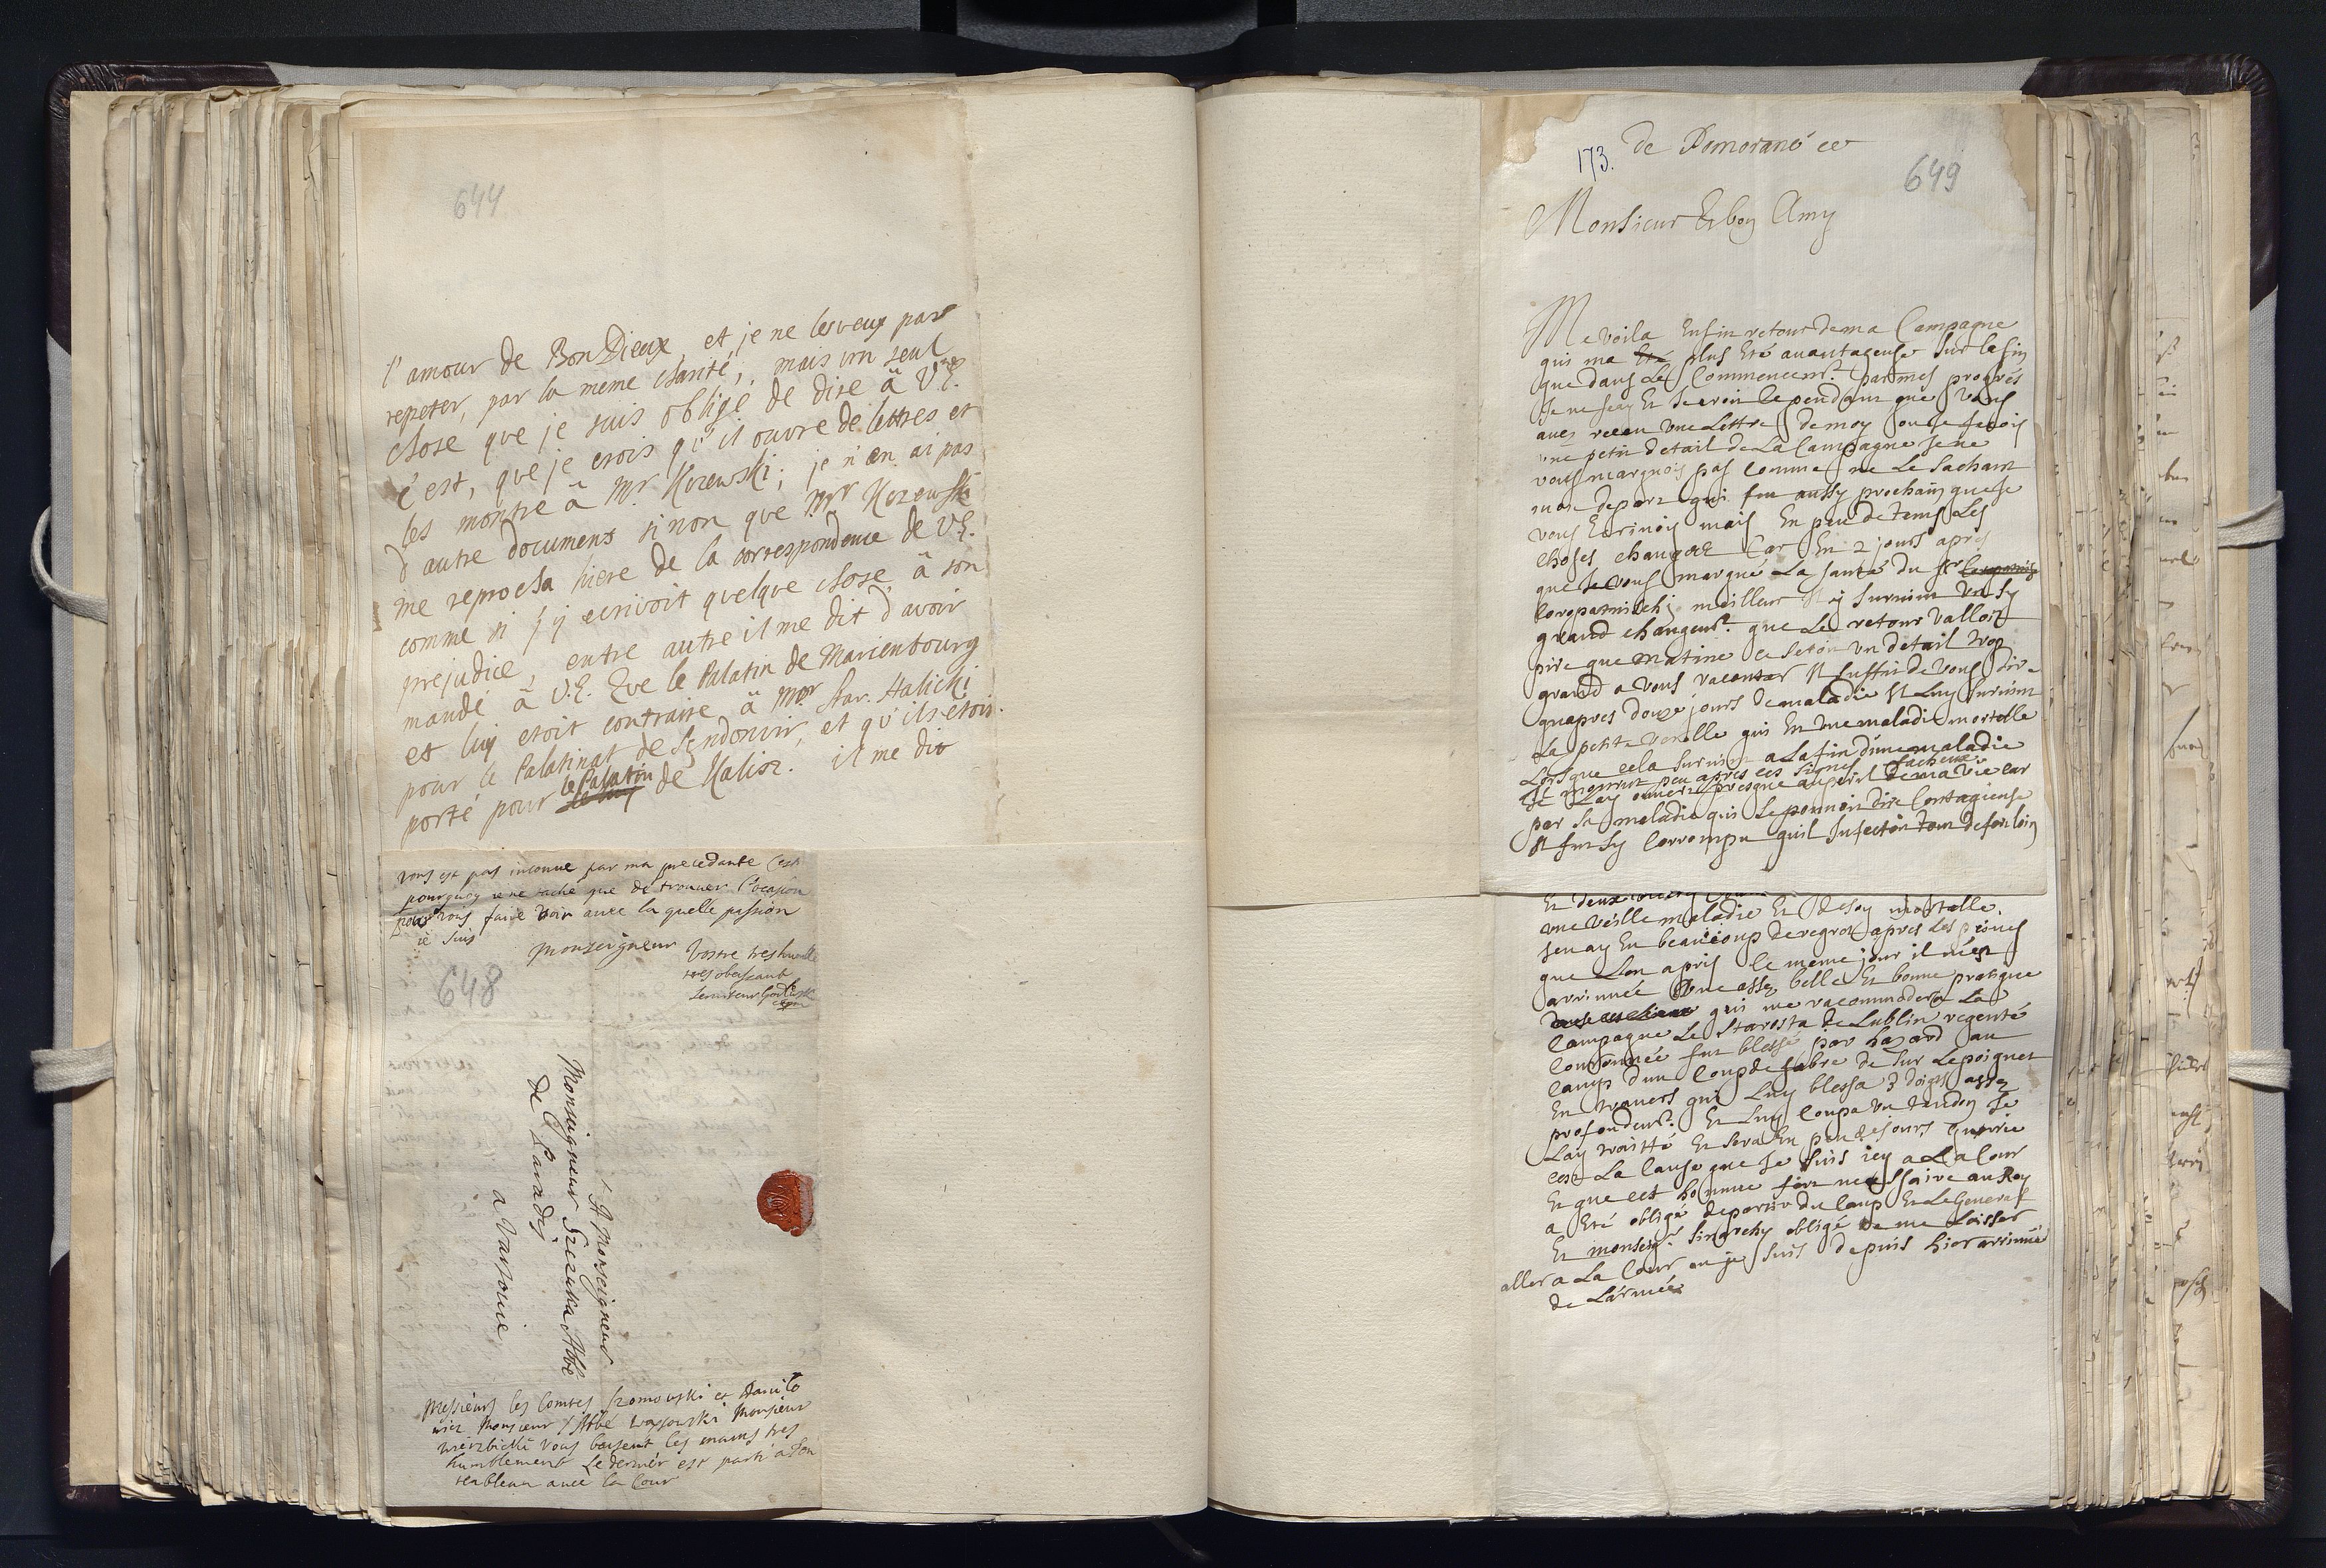 644
l'amour de Bon Dieux et je ne les veux pas
repeter, par la meme charité, mais un seul
chose que je suis obligé de dire â V.E.
c'est, que je crois qu'il ouvre de lettres et
les montre â Mr Kozewski; je n'en ai pas
d'autre documens sinon que Mr Kozewski
me reprocha hiere de la correspondence de V.E.
comme si j'y ecrivoit quelque chose â son
prejudice, entre autre il me dit d'avoir
mandé â V.E. Que le Palatin de Marienbourg
et luy etoit contraire â Mor Star. Halicki
pour le Palatinat de Sendomir, et qu'ils etois
porté pour le Palatin de Kalisz. il me dit
vous est pas inconnue par ma precedante c'est
pourquoy ie ne tache que de trouuer l'ocasion
pour vous faire voir auec la quelle passion
ie suis
Monseigneur Vostre tres humble
tres obeissant
seruiteur
648
A Monseigneur
Monseigneur Szczuka Abbé
de Paradis
a Varsouie
Messieurs les Comtes et
Monsieur l'Abbé Monsieur
vous baisent les mains tres
humblement Le dernier est parti a son
auec la Cour
173.
de Pomorané ce
649
Monsieur Et bon Amy
Me voila Enfin retour de ma Campagne
qui ma plus Eté auantageuse Sur la fin
que dans Le Commencemt. par mes progrés
Je ne scay Et Je croi Cependant que Vous
aués receu Une Lettre de moy ou Je fesois
vne petit detail de La Campagne Je ne
vous marquois pas Comme ne Le Sachant
mon depart qui fut aussy prochain que Je
vous Ecriuois mais En peu de tems Les
choses changoit Car En 2 jours aprés
que Je vous marqué La santé du Sr
meilleur Il y Suruint Un Sy
grand changemt. que Le retour Valloit
pire que matine Ce Seroit Un detail trop
grand a Vous raconter Il Suffit de Vous dire
quapres douze jours de maladie Il Luy Suruint
La petite verolle qui Est Une maladie mortelle
Lorsque cela Suruient a La fin d'une maladie
Il mourut peu apres ces Signes facheux
Je Lay ouuert presque au peril de ma Vie Car
par Sa maladie qui Se pouuoit dire Contagieuse
Il fut Sy Corrompu quil Infectoit tout de fort loin
Et deux
une vielle maladie Et de soy mortelle.
Jen ay Eu beaucoup de regret apres Les peines
que Lon a pris le meme jour il m'est
arriuée Une assez belle Et bonne pratique
qui me racommodera La
Campagne Le Starosta de Lublin regenté
Couronnée fut blessé par hazard au
Camp d'un Coup de Sabre de Sur Le poignet
En trauers qui Luy blessa 3 doigts assez
profondemt. Et Luy Coupa Un tandon Je
Lay traitté Et Sera En peu de Jours guerrie
cest La Cause que Je Suis icy a La Cour
Et que cet homme fort necessaire au Roy
a Eté obligé de partir du Camp Et Le General
Et monseigr. obligé de me Laisser
aller a La Cour ou je Suis depuis hier arriuué
de Lármée